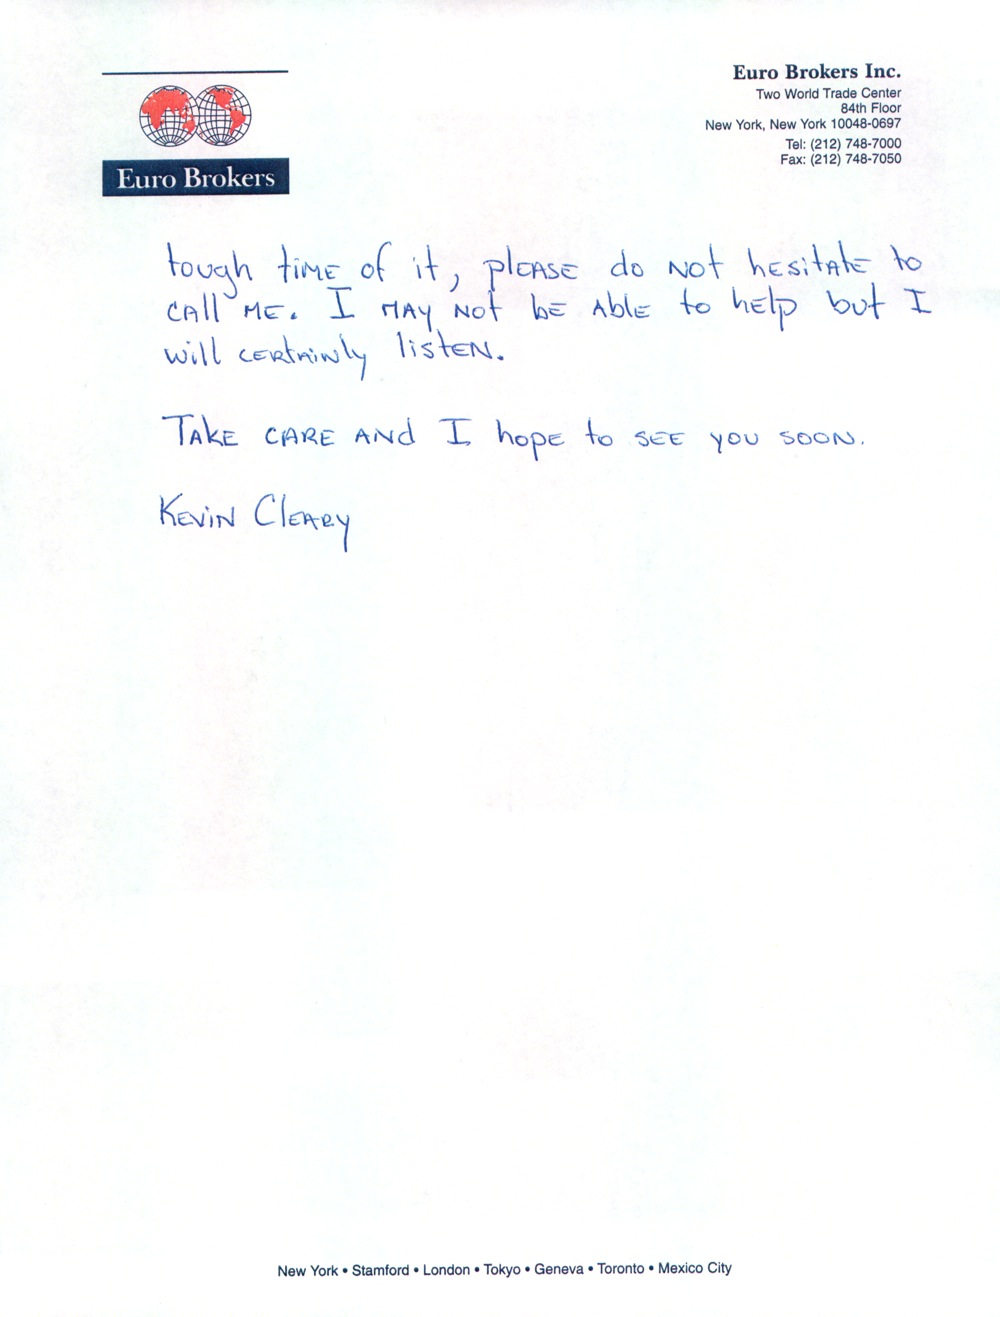 Euro Brokers
Euro Brokers Inc.
Two World Trade Center
84th Floor
New York, New York 10048-0697
Tel: (212) 748-7000
Fax: (212) 748-7050
tough time of it, please do not hesitate to
call me. I may not be able to help but I
will certainly listen.
Take care and I hope to see you soon.
Kevin Cleary
New York • Stamford • London • Tokyo • Geneva • Toronto • Mexico City